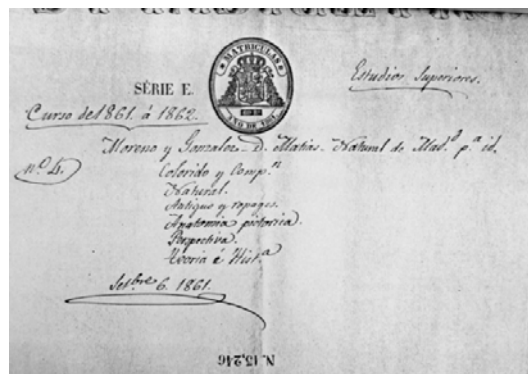 MATRICULAS
AÑO DE 1861.
SÉRIE E.
Estudios Superiores.
Curso de 1861. á 1862.
Moreno y Gonzalez D. Matias. Natural de Mad.d p.a id.
nº 4.
Colorido y Comp.n
Natural.
Antiguo y ropages.
Anatomia pictorica.
Perspectiva.
Teoria é Hist.a
Setbre 6. 1861.
N. 15,246